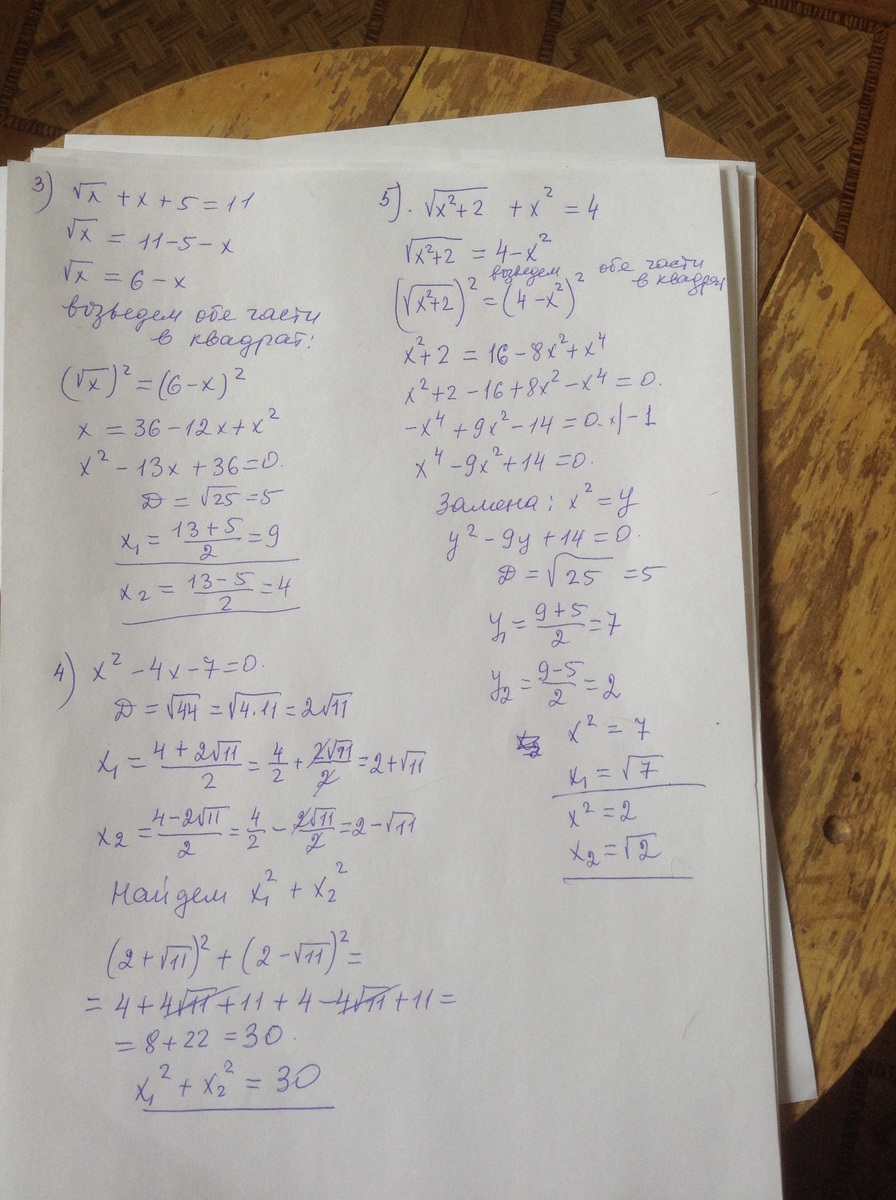 3) √x + x + 5 = 11
√x = 11 - 5 - x
√x = 6 - x
возведем обе части
в квадрат:
(√x)² = (6 - x)²
x = 36 - 12x + x²
x² - 13x + 36 = 0.
D = √25 = 5
x₁ = (13+5)/2 = 9
x₂ = (13-5)/2 = 4
4) x² - 4x - 7 = 0.
D = √44 = √4·11 = 2√11
x₁ = (4+2√11)/2 = 4/2 + 2√11/2 = 2+√11
x₂ = (4-2√11)/2 = 4/2 - 2√11/2 = 2-√11
Найдем x₁² + x₂²
(2+√11)² + (2-√11)² =
= 4 + 4√11 + 11 + 4 - 4√11 + 11 =
= 8 + 22 = 30.
x₁² + x₂² = 30
5). √x²+2 + x² = 4
√x²+2 = 4 - x²
возведем обе части
в квадрат
(√x²+2)² = (4 - x²)²
x² + 2 = 16 - 8x² + x⁴
x² + 2 - 16 + 8x² - x⁴ = 0.
-x⁴ + 9x² - 14 = 0. ×|-1
x⁴ - 9x² + 14 = 0.
Замена: x² = y
y² - 9y + 14 = 0.
D = √25 = 5
y₁ = (9+5)/2 = 7
y₂ = (9-5)/2 = 2
x² = 7
x₁ = √7
x² = 2
x₂ = √2